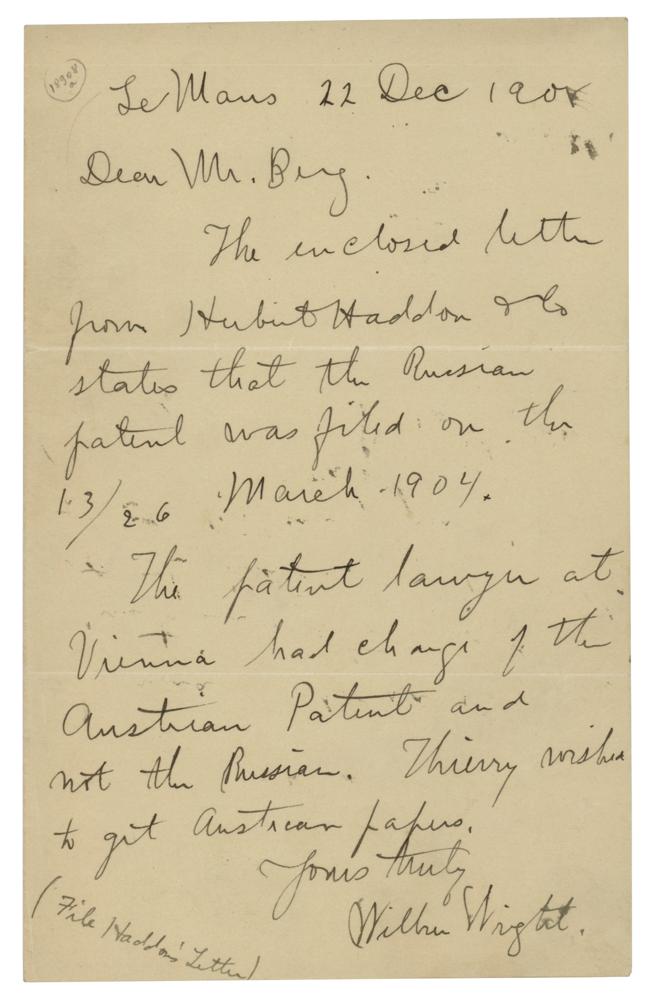 Le Mans 22 Dec 190
Dear Mr. Berg.
The enclosed letter
from Herbert Haddon & Co
states that the Russian
patent was filed on the
13/26 March 1904.
The patent lawyer at
Vienna had charge of the
Austrian Patent and
not the Russian. Thierry wished
to get Austrian papers.
Yours truly
Wilbur Wright.
(File Haddons' Letter)